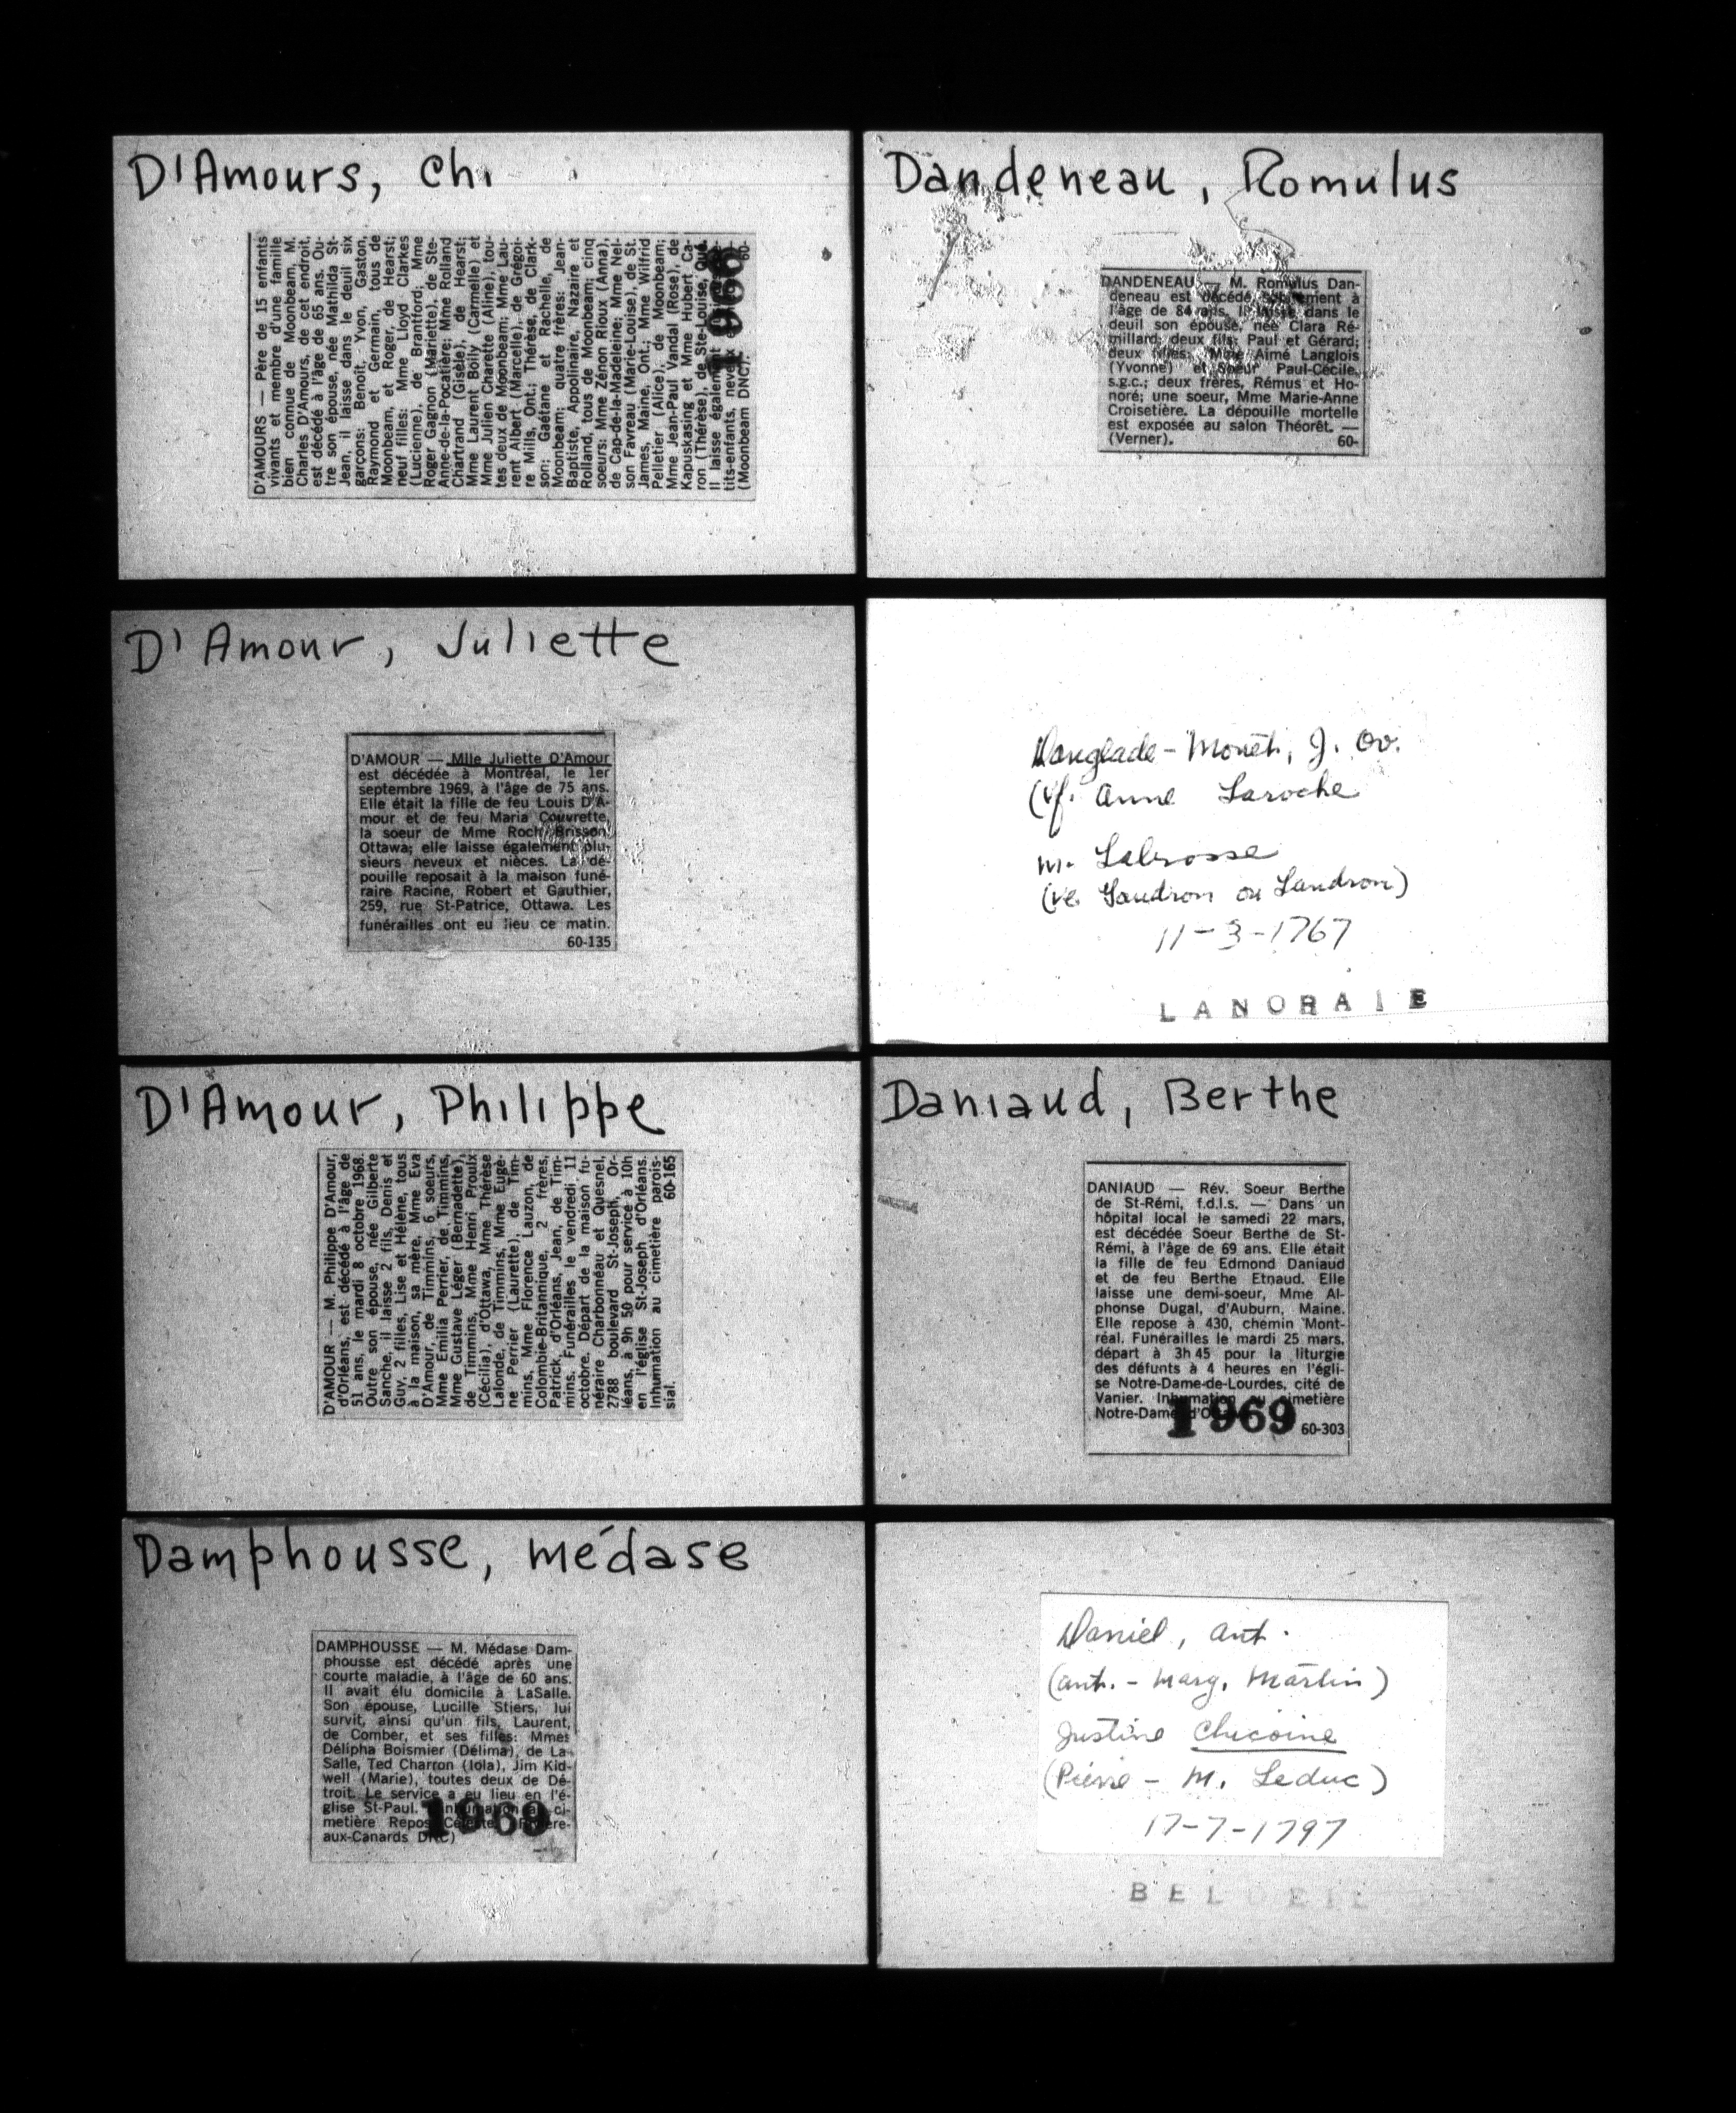 D'Amours, Ch
D'AMOURS — Père de 15 enfants
vivants et membre d'une famille
bien connue de Moonbeam, M.
Charles D'Amours, de cet endroit,
est décédé à l'âge de 65 ans. Ou-
tre son épouse, née Mathilda St-
Jean, il laisse dans le deuil six
garçons: Benoit, Yvon, Gaston,
Raymond et Germain, tous de
Moonbeam, et Roger, de Hearst;
neuf filles: Mme Lloyd Clarkes
(Lucienne), de Brantford; Mme
Roger Gagnon (Mariette), de Ste-
Anne-de-la-Pocatière; Mme Rolland
Chartrand (Gisèle), de Hearst;
Mme Laurent Boily (Carmelle) et
Mme Julien Charette (Aline), tou-
tes deux de Moonbeam; Mme Lau-
rent Albert (Marcelle), de Grégoi-
re Mills, Ont.; Thérèse, de Clark-
son; Gaétane et Rachelle, de
Moonbeam; quatre frères: Jean-
Baptiste, Appolinaire, Nazaire et
Rolland, tous de Moonbeam; cinq
soeurs: Mme Zénon Rioux (Anna),
de Cap-de-la-Madeleine; Mme Nel-
son Favreau (Marie-Louise), de St.
James, Maine, Ont.; Mme Wilfrid
Pelletier (Alice), de Moonbeam;
Mme Jean-Paul Vandal (Rose), de
Kapuskasing et Mme Hubert Ca-
ron (Thérèse), de Ste-Louise, Qué.
Il laisse également
tits-enfants, neveux
(Moonbeam DNC). 60-
1966
Dandeneau, Romulus
DANDENEAU — M. Romulus Dan-
deneau est décédé subitement à
l'âge de 84 ans. Il laisse dans le
deuil son épouse, née Clara Ré-
millard; deux fils: Paul et Gérard;
deux filles: Mme Aimé Langlois
(Yvonne) et Soeur Paul-Cécile,
s.g.c.; deux frères, Rémus et Ho-
noré; une soeur, Mme Marie-Anne
Croisetière. La dépouille mortelle
est exposée au salon Théorêt. —
(Verner). 60-
D'Amour, Juliette
D'AMOUR — Mlle Juliette D'Amour
est décédée à Montréal, le 1er
septembre 1969, à l'âge de 75 ans.
Elle était la fille de feu Louis D'A-
mour et de feu Maria Couvrette,
la soeur de Mme Roch Brisson,
Ottawa; elle laisse également plu-
sieurs neveux et nièces. La dé-
pouille reposait à la maison funé-
raire Racine, Robert et Gauthier,
259, rue St-Patrice, Ottawa. Les
funérailles ont eu lieu ce matin.
60-135
Danglade-Monêt, J. Ov.
(vf. Anne Laroche
m. Labrosse
(ve. Gaudron ou Landron)
11-3-1767
LANORAIE
D'Amour, Philippe
D'AMOUR — M. Philippe D'Amour,
d'Orléans, est décédé à l'âge de
51 ans, le mardi 8 octobre 1968.
Outre son épouse, née Gilberte
Sanche, il laisse 2 fils, Denis et
Guy, 2 filles, Lise et Hélène, tous
à la maison, sa mère, Mme Eva
D'Amour, de Timmins, 6 soeurs,
Mme Emilia Perrier, de Timmins,
Mme Gustave Léger (Bernadette),
de Timmins, Mme Henri Proulx
(Cécilia), d'Ottawa, Mme Thérèse
Lalonde, de Timmins, Mme Eugè-
ne Perrier (Laurette), de Tim-
mins, Mme Florence Lauzon, de
Colombie-Britannique, 2 frères,
Patrick, d'Orléans, Jean, de Tim-
mins. Funérailles le vendredi 11
octobre. Départ de la maison fu-
néraire Charbonneau et Quesnel,
2788 boulevard St-Joseph, Or-
léans, à 9h 50 pour service à 10h
en l'église St-Joseph d'Orléans.
Inhumation au cimetière parois-
sial. 60-165
Daniaud, Berthe
DANIAUD — Rév. Soeur Berthe
de St-Rémi, f.d.l.s. — Dans un
hôpital local le samedi 22 mars,
est décédée Soeur Berthe de St-
Rémi, à l'âge de 69 ans. Elle était
la fille de feu Edmond Daniaud
et de feu Berthe Etnaud. Elle
laisse une demi-soeur, Mme Al-
phonse Dugal, d'Auburn, Maine.
Elle repose à 430, chemin Mont-
réal. Funérailles le mardi 25 mars,
départ à 3h 45 pour la liturgie
des défunts à 4 heures en l'égli-
se Notre-Dame-de-Lourdes, cité de
Vanier. Inhumation au cimetière
Notre-Dame
1969
60-303
Damphousse, Médase
DAMPHOUSSE — M. Médase Dam-
phousse est décédé après une
courte maladie, à l'âge de 60 ans.
Il avait élu domicile à LaSalle.
Son épouse, Lucille Stiers, lui
survit, ainsi qu'un fils, Laurent,
de Comber, et ses filles: Mmes
Délipha Boismier (Délima), de La-
Salle, Ted Charron (Iola), Jim Kid-
well (Marie), toutes deux de Dé-
troit. Le service a eu lieu en l'é-
glise St-Paul. Inhumation au ci-
metière Repos Céleste. (Rivière-
aux-Canards DNC)
1969
Daniel, Ant.
(Ant. - Marg. Martin)
Justine Chicoine
(Pierre - M. Leduc)
17-7-1797
BELOEIL